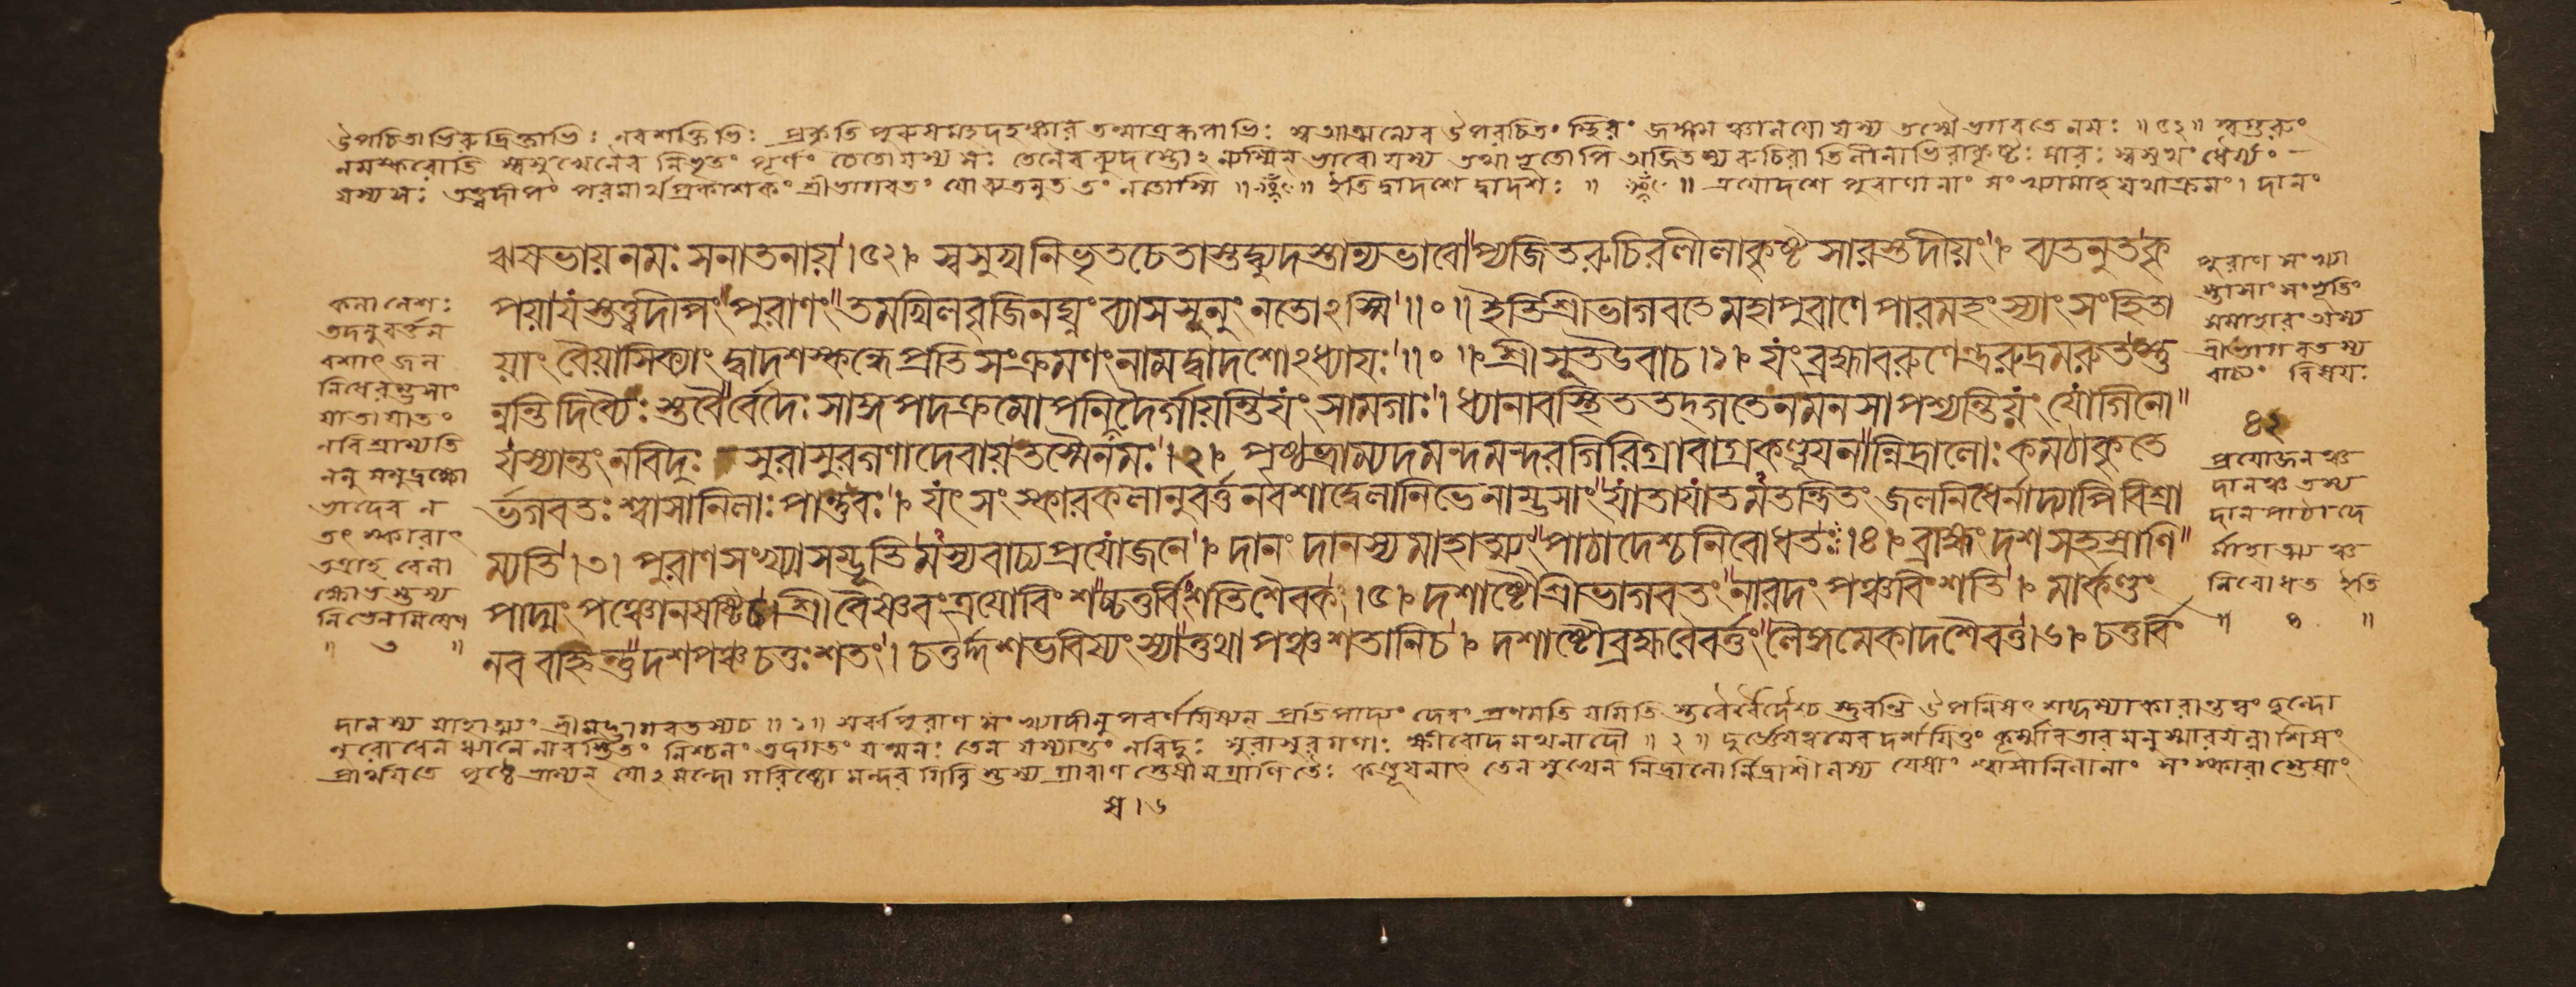 উপচিতাভিরুদ্রিক্তাভিঃ নবশক্তিভিঃ প্রকৃতিপুরুষমহদহঙ্কারতন্মাত্ররূপাভিঃ স্বআত্মন্যেব উপরচিতং স্থির জঙ্গম যস্য তস্মৈ ভগবতে নমঃ ॥ ৫২ ॥ স্বগুরুং
নমস্করোতি স্বসুখেনৈব নিভৃতং পূর্ণং চেতো যস্য সঃ তেনৈব ব্যুদস্তোঽন্যস্মিন্ ভাবো যস্য তথাভূতোপি অজিতস্য রুচিরাভিলীলাভিরাকৃষ্টঃ সারঃ স্বসুখং ধৈর্য্যং
যস্য সঃ তত্ত্বদীপং পরমার্থপ্রকাশকং শ্রীভাগবতং যো ব্যতনুত তং নতোস্মি ॥ ইতি দ্বাদশে দ্বাদশঃ ॥ ॥ ত্রয়োদশে পুরাণানাং সংখ্যামাহ যথাক্রমং। দানং
ঋষভায় নমঃ সনাতনায় ।৫২। স্বসুখনিভৃতচেতাস্তদ্ব্যুদস্তান্যভাবোপ্যজিতরুচিরলীলাকৃষ্টসারস্তদীয়ং। ব্যতনুত কৃ
পয়া যস্তত্ত্বদীপং পুরাণং তমখিলবৃজিনঘ্নং ব্যাসসূনুং নতোঽস্মি ॥০॥ ইতি শ্রীভাগবতে মহাপুরাণে পারমহংস্যাং সংহিতা
য়াং বৈয়াসিক্যাং দ্বাদশস্কন্ধে প্রতিসংক্রমণং নাম দ্বাদশোঽধ্যায়ঃ ॥০॥ শ্রীসূত উবাচ ।১। যং ব্রহ্মাবরুণেন্দ্ররুদ্রমরুতস্তু
ন্বন্তি দিব্যৈঃ স্তবৈর্বেদৈঃ সাঙ্গপদক্রমোপনিষদৈর্গায়ন্তি যং সামগাঃ। ধ্যানাবস্থিততদ্গতেন মনসা পশ্যন্তি যং যোগিনো
যস্যান্তং ন বিদুঃ সুরাসুরগণা দেবায় তস্মৈ নমঃ ।২। পৃষ্ঠভ্রাম্যদমন্দমন্দরগিরিগ্রাবাগ্রকণ্ডূয়নান্নিদ্রালোঃ কমঠাকৃতে
র্ভগবতঃ শ্বাসানিলাঃ পান্তু বঃ। যৎসংস্কারকলানুবর্ত্তনবশাদ্বেলানিভেনাম্ভসাং যাতায়াতমতন্দ্রিতং জলনিধের্নাদ্যাপি বিশ্রা
ম্যতি ।৩। পুরাণসংখ্যাসম্ভূতিমস্য বাচ্যপ্রয়োজনে। দানং দানস্য মাহাত্ম্যং পাঠাদেশ্চ নিবোধত ।৪। ব্রাহ্মং দশসহস্রাণি
পাদ্মং পঞ্চোনষষ্টি চ। শ্রীবৈষ্ণবং ত্রয়োবিংশচ্চতুর্বিংশতি শৈবকং ।৫। দশাষ্টৌ শ্রীভাগবতং নারদং পঞ্চবিংশতি। মার্কণ্ডং
নব বহ্নিন্তু দশপঞ্চ চতুঃশতং। চতুর্দ্দশ ভবিষ্যং স্যাত্তথা পঞ্চশতানি চ। দশাষ্টৌ ব্রহ্মবৈবর্ত্তং লৈঙ্গমেকাদশৈব তু ।৬। চতুর্বিং
কলা লেশঃ
তদনুবর্ত্তন
বশাৎ জল
নিধেরম্ভসাং
যাতায়াতং
ন বিশ্রাম্যতি
ননু সমুদ্রক্ষো
ভাদেব ন
তৎসংস্কারাৎ
তত্রাহ বেলা
ক্ষোভস্তস্য
নিভেন মিষেণ
॥ ৩ ॥
পুরাণ সংখ্যা
স্তাসাং সংভূতিং
সমাহারং অস্য
শ্রীভাগবতস্য
বাচ্যং বিষয়ঃ
৪২
প্রয়োজনঞ্চ
দানঞ্চ তস্য
দানপাঠাদে
র্মাহাত্ম্যঞ্চ
নিবোধত ইতি
॥ ৪ ॥
দানস্য মাহাত্ম্যং শ্রীমদ্ভাগবতস্য চ ॥ ১ ॥ সর্ব্বপুরাণসংখ্যাদীনুপবর্ণয়িষ্যন্ প্রতিপাদ্যং দেবং প্রণমতি যমিতি স্তবৈর্বেদৈশ্চ স্তুবন্তি উপনিষৎ শব্দস্যাকারান্তত্বং ছন্দো
নুরোধেন ধ্যানেনাবস্থিতং নিশ্চলং তদ্গতং যন্মনঃ তেন যস্যান্তং ন বিদুঃ সুরাসুরগণাঃ ক্ষীরোদমথনাদৌ ॥ ২ ॥ দুর্জ্ঞেয়ত্বমেব দর্শয়িতুং কূর্ম্মাবতারমনুস্মারয়ন্নাশিষং
প্রার্থয়তে পৃষ্ঠে ভ্রাম্যন্ যোঽমন্দো গরিষ্ঠো মন্দরগিরিস্তস্য গ্রাবাণস্তেষামগ্রাণি তৈঃ কণ্ডূয়নাৎ তেন সুখেন নিদ্রালোর্নিদ্রাশীলস্য যেষাং শ্বাসানিলানাং সংস্কারাস্তেষাং